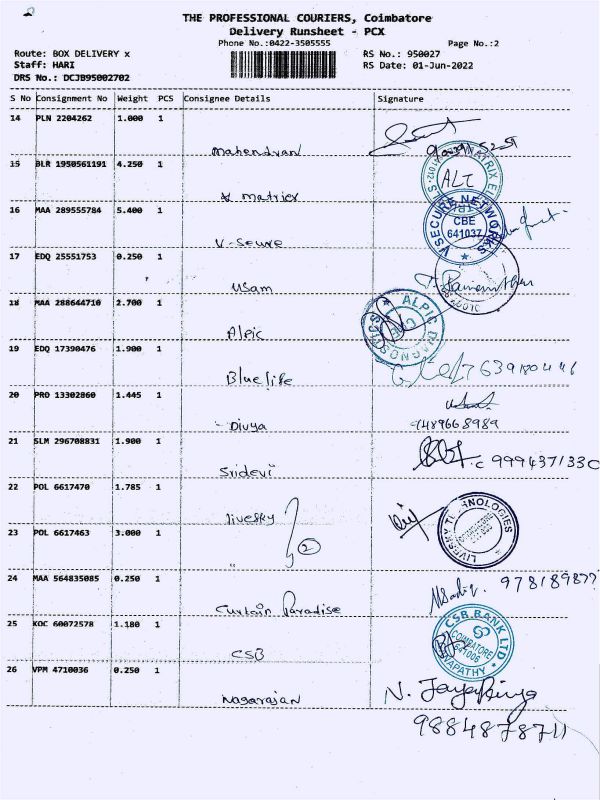 THE PROFESSIONAL COURIERS, Coimbatore
Delivery Runsheet - PCX
Phone No.:0422-3505555
Page No.:2
Route: BOX DELIVERY x
RS No.: 950027
Staff: HARI
RS Date: 01-Jun-2022
DRS No.: DCJB95002702
S No Consignment No Weight PCS Consignee Details Signature
14 PLN 2204262 1.000 1
Mahendran
15 BLR 1950561191 4.250 1
ALT
16 MAA 289555784 5.400 1
VSECURE NETWORKS
CBE
641037
17 EDQ 25551753 0.250 1
Usam
18 MAA 288644710 2.700 1
Alpic
ALPIC DIAGNOSTICS
CBE
19 EDQ 17390476 1.900 1
Bluelife
20 PRO 13302860 1.445 1
Divya
9489668989
21 SLM 296708831 1.900 1
Sridevi
9994371330
22 POL 6617470 1.785 1
livesky
LIVESKY TECHNOLOGIES
23 POL 6617463 3.000 1
2
"
24 MAA 564835085 0.250 1
Curtain Paradise
25 KOC 60072578 1.180 1
CSB
CSB BANK LTD
COIMBATORE
641006
26 VPM 4710036 0.250 1
Nagarajan
N. Jayapriya
9884878711